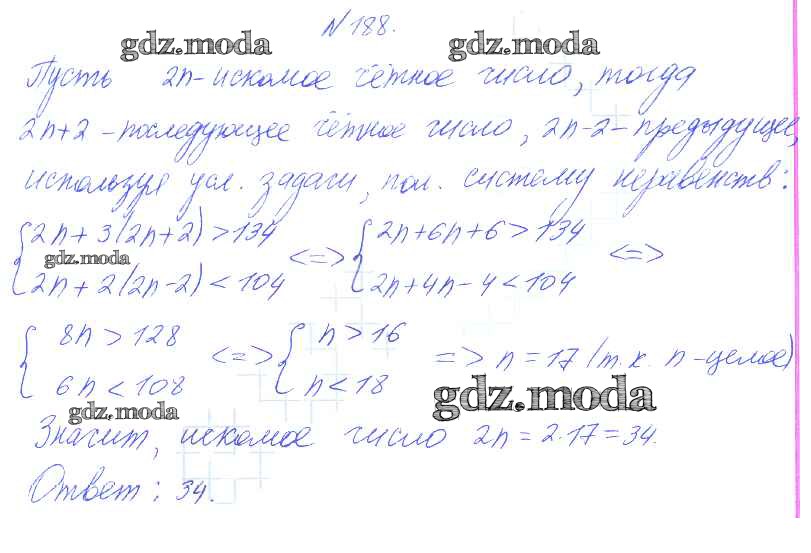 №188.
gdz.moda gdz.moda
Пусть 2n - искомое чётное число, тогда
2n+2 - последующее чётное число, 2n-2 - предыдущее,
используя усл. задачи, пол. систему неравенств:
{2n+3(2n+2)>134 <=> {2n+6n+6>134 <=>
gdz.moda
2n+2(2n-2)<104 2n+4n-4<104
{8n>128 <=> {n>16 => n=17 (т.к. n-целое)
6n<108 n<18
gdz.moda gdz.moda
Значит, искомое число 2n=2·17=34.
Ответ: 34.